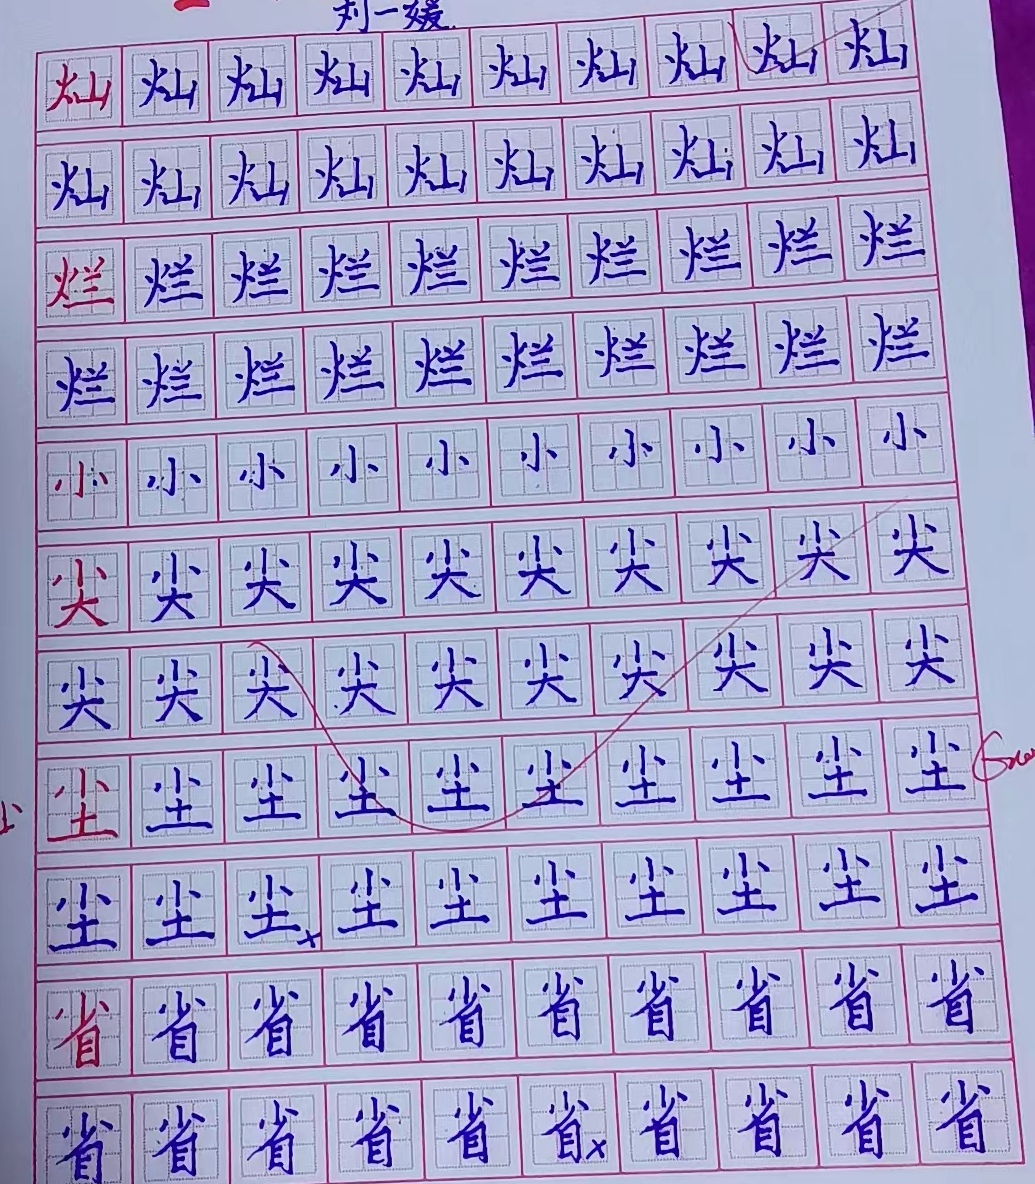 刘一媛
灿灿灿灿灿灿灿灿灿灿
灿灿灿灿灿灿灿灿灿灿
烂烂烂烂烂烂烂烂烂烂
烂烂烂烂烂烂烂烂烂烂
小小小小小小小小小小
尖尖尖尖尖尖尖尖尖尖
尖尖尖尖尖尖尖尖尖尖
尘尘尘尘尘尘尘尘尘尘
尘尘尘尘尘尘尘尘尘尘
省省省省省省省省省省
省省省省省省省省省省